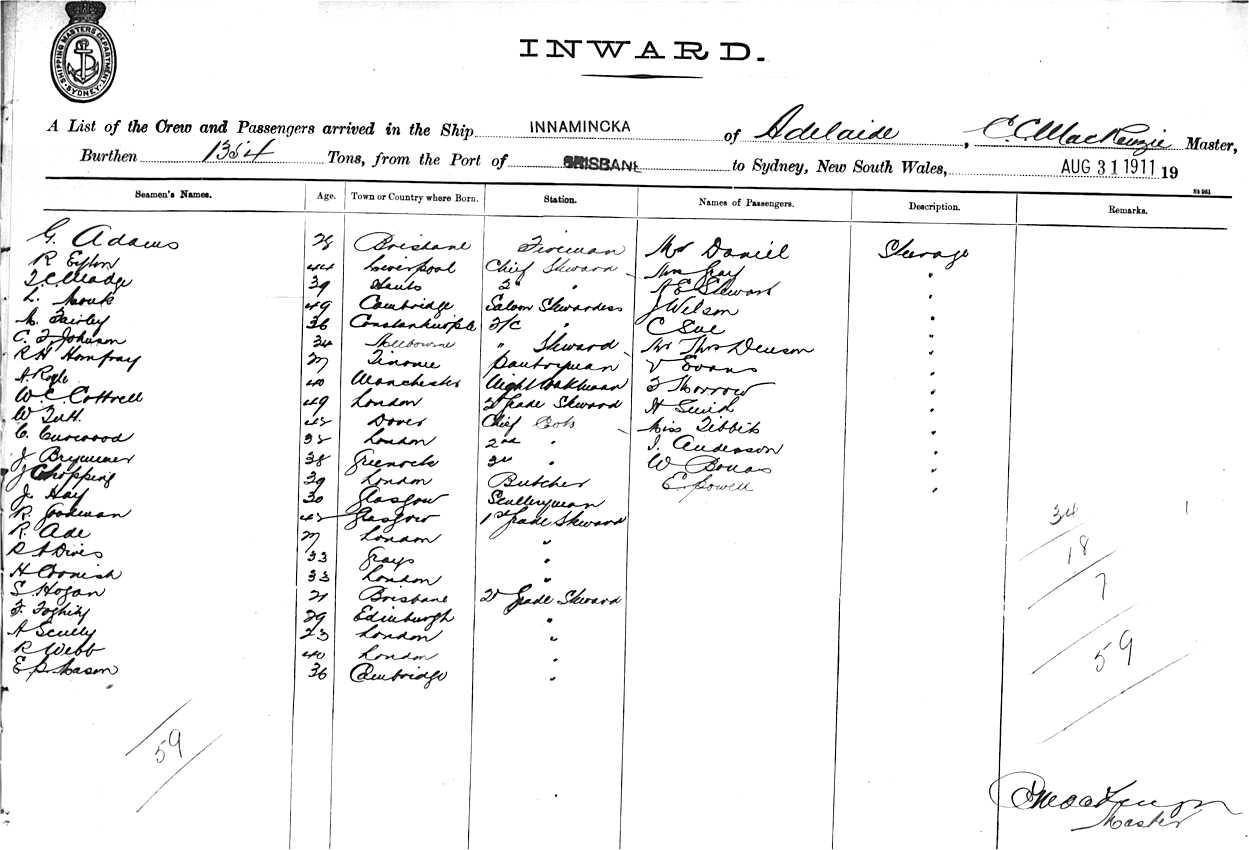 SHIPPING MASTERS DEPARTMENT. SYDNEY.
INWARD.
A List of the Crew and Passengers arrived in the Ship INNAMINCKA of Adelaide, C.C. MacKenzie Master,
Burthen 1354 Tons, from the Port of BRISBANE to Sydney, New South Wales, AUG 31 1911 19
Seamen's Names. Age. Town or Country where Born. Station. Names of Passengers. Description. Remarks.
G. Adams 28 Brisbane Fireman Mr Daniel Steerage
R 44 Liverpool Chief Steward Mrs Gray "
39 Hants 2d " A E Steward "
L. 49 Cambridge Saloon Stewardess J Wilson "
M. Fairley 36 Constantinople F/C " C Sue "
C. F Johnson 34 Melbourne " Steward Mr Thos Denson "
R H Homfray 27 Pantryman V Evans "
A. 40 Manchester Night Watchman F Morrow "
W. C Cottrell 49 London 2d Grade Steward H "
W 42 Dover Chief Cook Miss Tibbits "
C. Curwood 32 London 2nd " J. Anderson "
J 38 Greenock 3rd " W Bonas "
J Chopping 39 London Butcher E Powell "
J. Hay 30 Glasgow Sculleryman
R. Goodman 42 Glasgow 1st Grade Steward 34
R. Ade 27 London " 18
R A Dives 33 Grays " 7
H Cornish 33 London "
S. Hogan 21 Brisbane 2d Grade Steward
F. 29 Edinburgh " 59
A Scully 23 London "
R Webb 40 London "
E P Mason 36 Cambridge "
59
C MacKenzie
Master